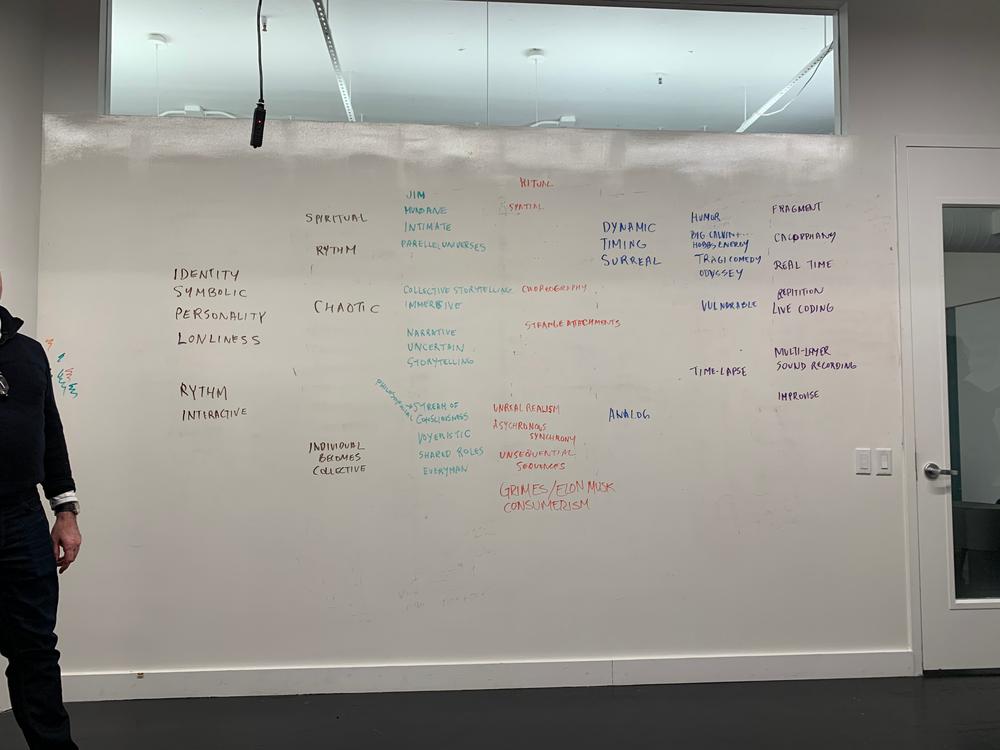 IDENTITY
SYMBOLIC
PERSONALITY
LONLINESS
RYTHM
INTERACTIVE
SPIRITUAL
RYTHM
CHAOTIC
INDIVIDUAL
BECOMES
COLLECTIVE
JIM
MUNDANE
INTIMATE
PARELLEL UNIVERSES
COLLECTIVE STORYTELLING
IMMERSIVE
NARRATIVE
UNCERTAIN
STORYTELLING
PHILOSOPHICAL
STREAM OF
CONSCIOUSNESS
VOYERISTIC
SHARED ROLES
EVERYMAN
RITUAL
SPATIAL
CHOREOGRAPHY
STRANGE ATTACHMENTS
UNREAL REALISM
ASYCHRONOUS
SYNCHRONY
UNSEQUENTIAL
SEQUENCES
GRIMES/ELON MUSK
CONSUMERISM
DYNAMIC
TIMING
SURREAL
ANALOG
HUMOR
BIG CALVIN +
HOBBS ENERGY
TRAGICOMEDY
ODYSSEY
VULNARABLE
TIME-LAPSE
FRAGMENT
CACOPPHANY
REAL TIME
REPITITION
LIVE CODING
MULTI-LAYER
SOUND RECORDING
IMPROVISE